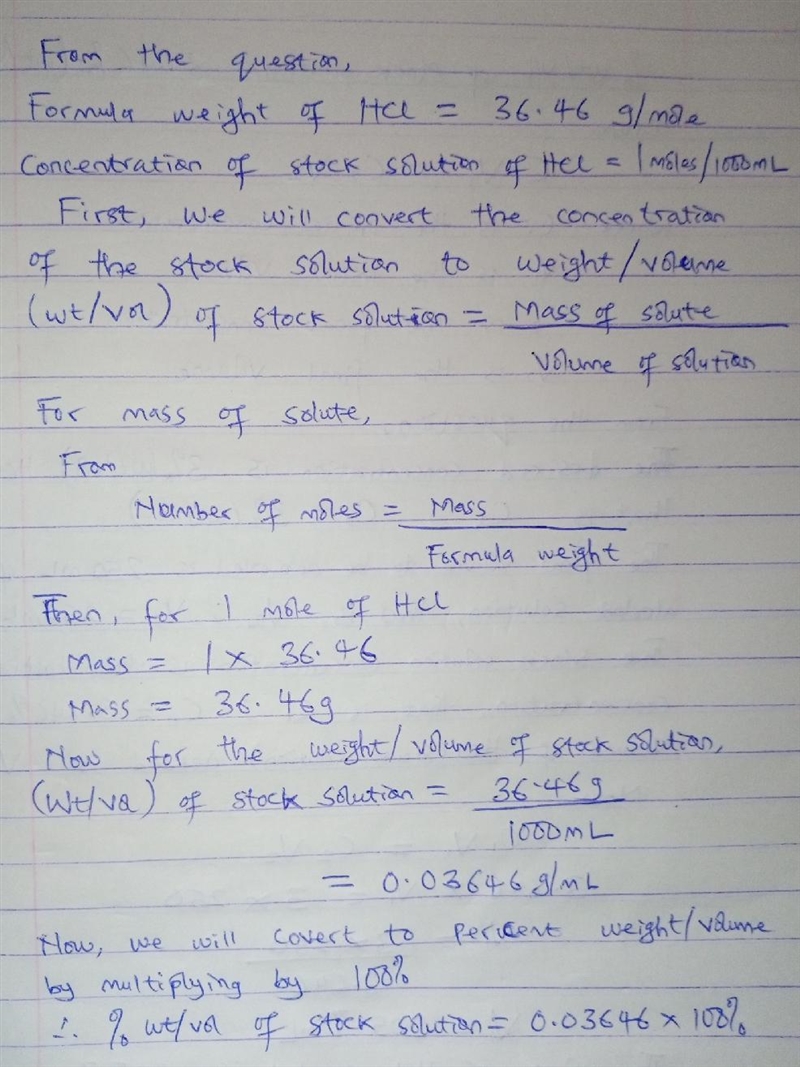 From the question,
Formula weight of HCl = 36.46 g/mole
Concentration of stock solution of HCl = 1 moles/1000mL
First, we will convert the concentration
of the stock solution to weight/volume
(wt/vol) of stock solution = Mass of solute
Volume of solution
For mass of solute,
From
Number of moles = Mass
Formula weight
Then, for 1 mole of HCl
Mass = 1 × 36.46
Mass = 36.46g
Now for the weight/volume of stock solution,
(wt/vol) of stock solution = 36.46g
1000mL
= 0.03646 g/mL
Now, we will covert to percent weight/volume
by multiplying by 100%
∴ % wt/vol of stock solution = 0.03646 × 100%